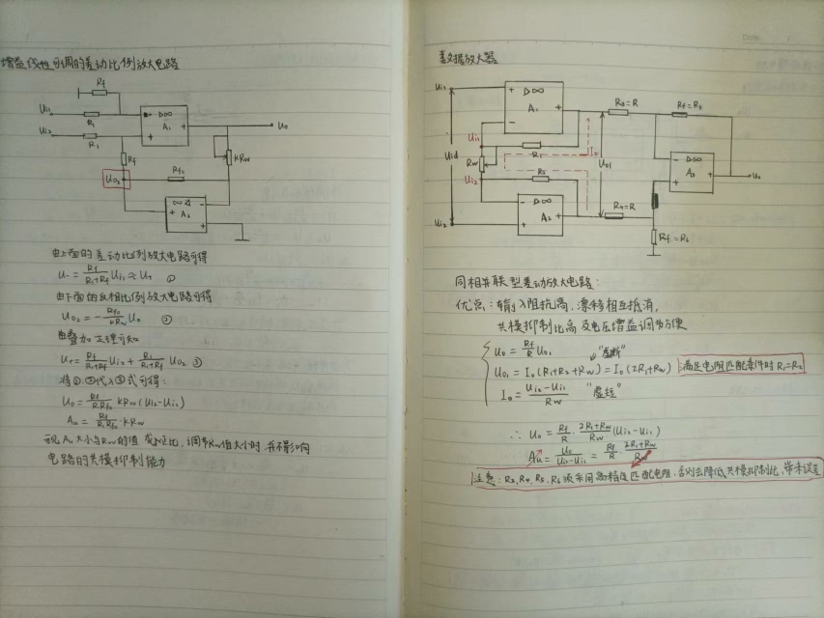 增益线性可调的差动比例放大电路
Rf
Ui1
R1
A1
Uo
Ui2
R1
Rf
kRw
Uo2
Rf2
A2
由上面的差动比例放大电路可得
U- = Rf/(R1+Rf) Ui1 ≈ U+ ①
由下面的反相比例放大电路可得
Uo2 = - Rf2/kRw Uo ②
由叠加定理可知
U+ = Rf/(R1+Rf) Ui2 + R1/(R1+Rf) Uo2 ③
将①、②代入③式可得:
Uo = Rf/(R1Rf2) kRw (Ui2-Ui1)
Au = Rf/(R1Rf2) · kRw
电路的共模抑制能力
数据放大器
Ui1
A1
R3=R
Rf=R5
Ui1
R1
Io
Uid
Rw
Uo1
A3
Uo
Ui2
R2
A2
R4=R
Ui2
Rf=R6
同相并联型差动放大电路:
优点:输入阻抗高,漂移相互抵消,
共模抑制比高及电压增益调节方便
Uo = Rf/R Uo1
"虚断"
Uo1 = Io(R1+R2+Rw) = Io(2R1+Rw) 满足电阻匹配条件时 R1=R2
Io = (Ui2-Ui1)/Rw "虚短"
∴ Uo = Rf/R · (2R1+Rw)/Rw (Ui2-Ui1)
Au = Uo/(Ui2-Ui1) = Rf/R · (2R1+Rw)/Rw
注意:R3、R4、R5、R6须采用高精度匹配电阻,否则会降低共模抑制比,带来误差